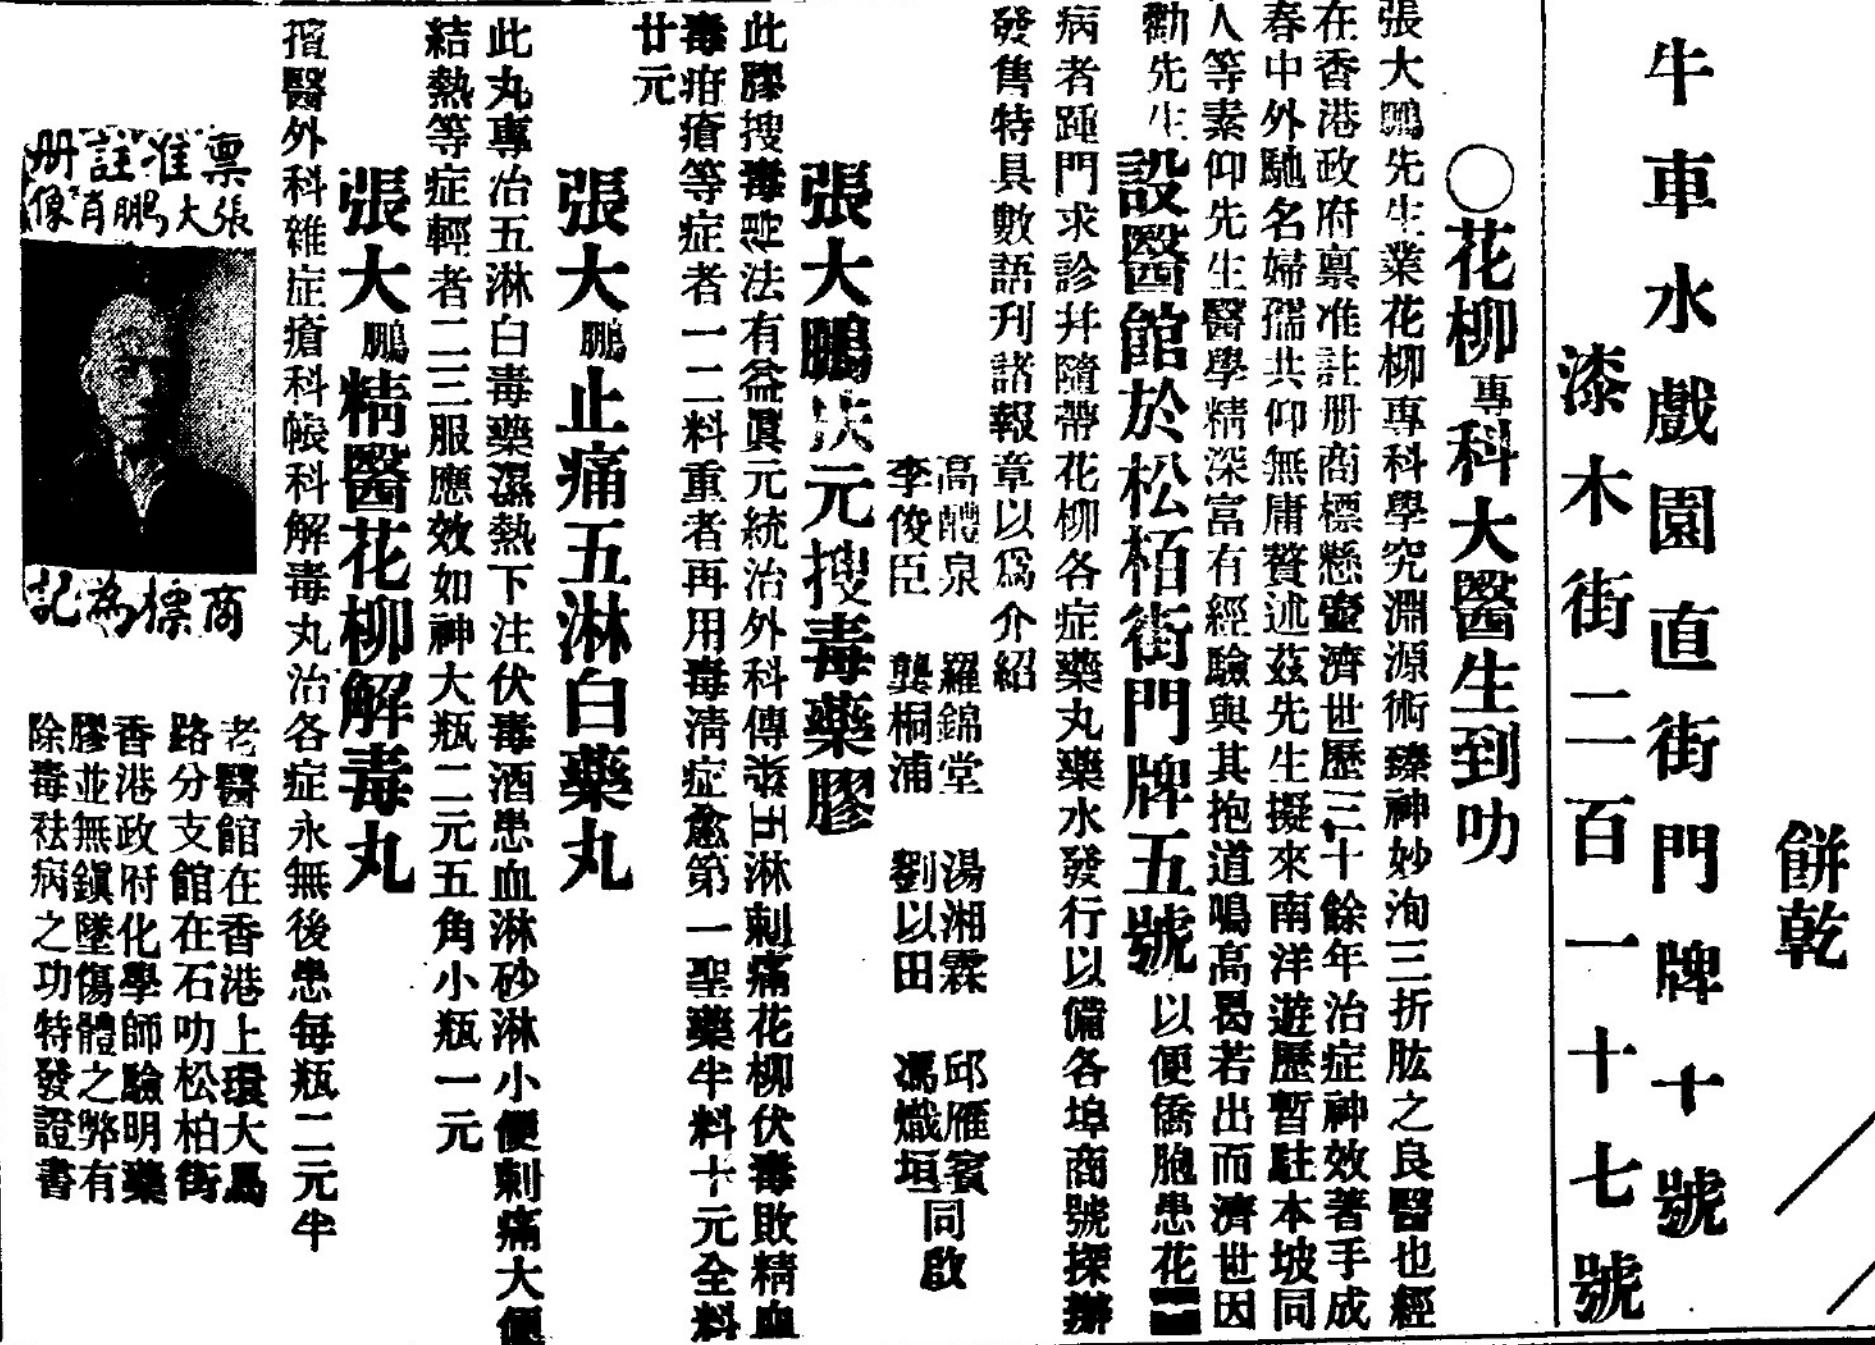 餅乾
牛車水戲園直街門牌十號
漆木街二百一十七號
〇花柳專科大醫生到叻
張大鵬先生業花柳專科學究淵源術臻神妙洵三折肱之良醫也經
在香港政府稟准註册商標懸壼濟世歷三十餘年治症神效著手成
春中外馳名婦孺共仰無庸贅述茲先生擬來南洋遊歷暫駐本坡同
人等素仰先生醫學精深富有經驗與其抱道鳴高曷若出而濟世因
勸先生設醫館於松栢街門牌五號以便僑胞患花
病者踵門求診幷隨帶花柳各症藥丸藥水發行以備各埠商號採辦
發售特具數語刋諸報章以爲介紹
高醴泉 羅錦堂 湯湘霖 邱雁賓
李俊臣 龔桐浦 劉以田 馮熾垣
同啟
張大鵬扶元搜毒藥膠
此膠搜毒法有益眞元統治外科傳染五淋刺痛花柳伏毒敗精血
毒疳瘡等症者一二料重者再用毒淸症愈第一聖藥半料十元全料
廿元
張大鵬止痛五淋白藥丸
此丸專治五淋白毒藥濕熱下注伏毒酒患血淋砂淋小便刺痛大便
結熱等症輕者二三服應效如神大瓶二元五角小瓶一元
張大鵬精醫花柳解毒丸
擅醫外科雜症瘡科帳科解毒丸治各症永無後患每瓶二元半
稟准註册
張大鵬肖像
商標為記
老醫館在香港上環大馬
路分支館在石叻松柏街
香港政府化學師驗明藥
膠並無鎭墜傷體之弊有
除毒袪病之功特發證書